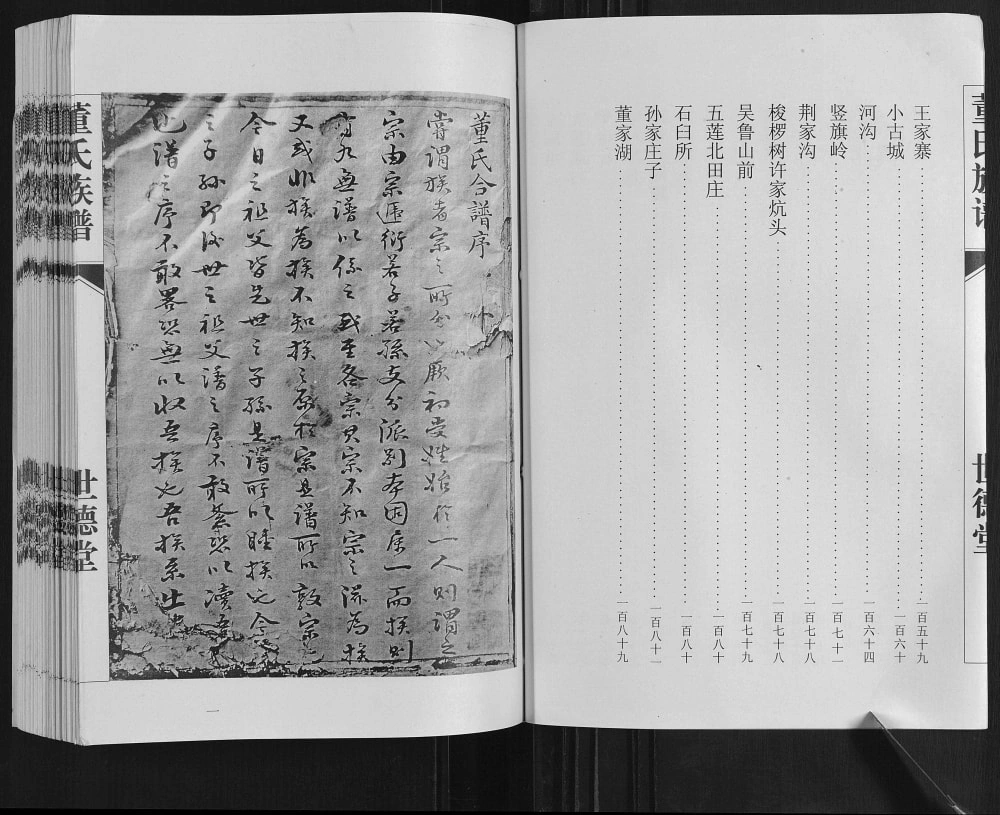 董氏族谱
世德堂
王家寨……一百五十九
小古城……一百六十
河沟……一百六十四
竖旗岭……一百七十一
荆家沟……一百七十八
梭椤树许家炕头……一百七十八
吴鲁山前……一百七十九
五莲北田庄……一百八十
石臼所……一百八十
孙家庄子……一百八十一
董家湖……一百八十九
董氏合譜序
嘗謂族者宗之所分也厥初受姓始於一人則謂之
宗由宗遞衍若子若孫支分派别本因原一而族則
有九無譜以係之或至各宗其宗不知宗之流為族
又或非族為族不知族之原於宗且譜所以敦宗也
今日之祖父皆先世之子孫且譜所以睦族也今
之子孫即後世之祖父譜之序不敢紊恐以瀆吾
也譜之序不敢畧恐無以收吾族也吾族系出
董氏族譜
世德堂
一